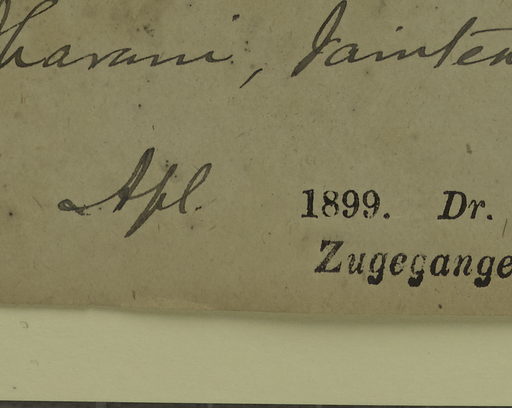 Jharani, Jainten
Apl.
1899. Dr.
Zugegange